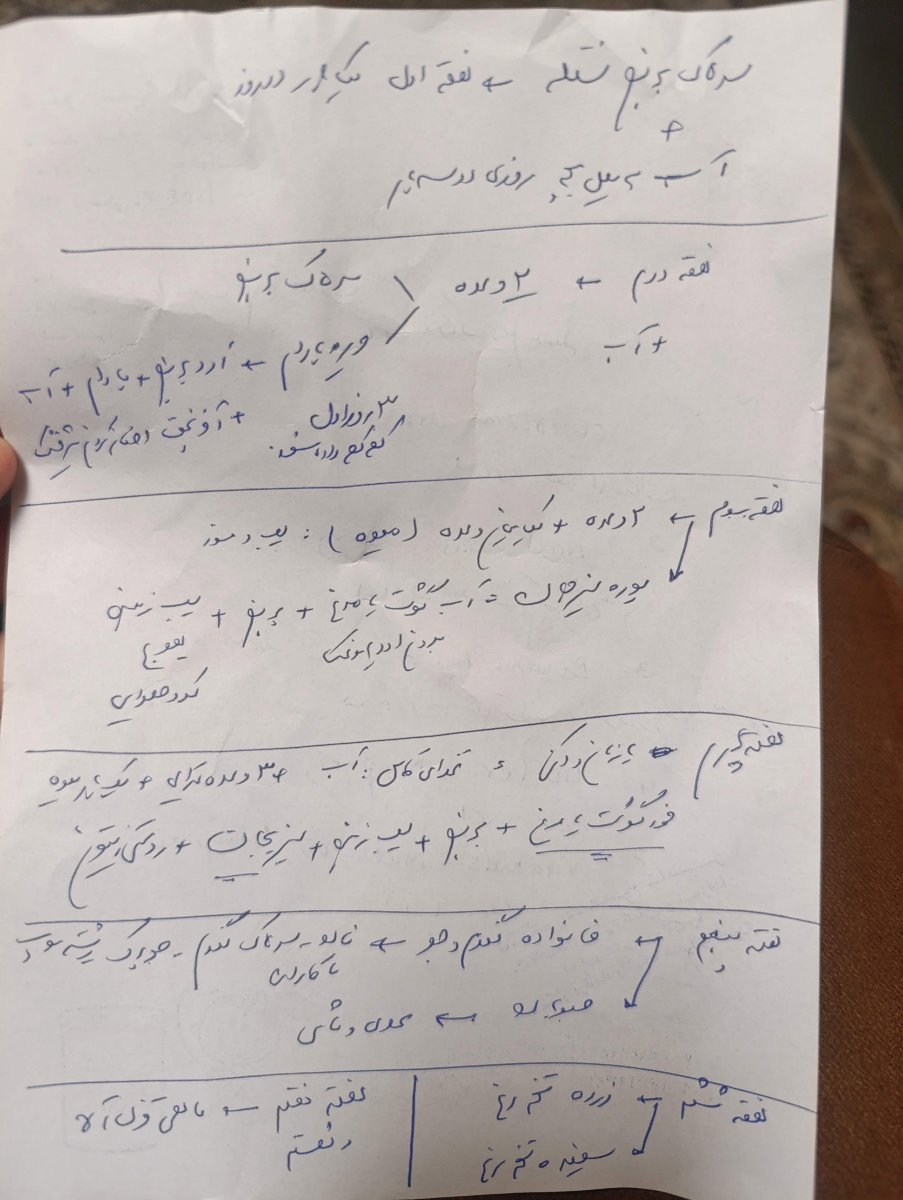 سرلاک برنج نستله ← هفته اول یکبار در روز
+
آب ← به میل بچه روزی دو سه بار
هفته دوم ← ۲ وعده \ سرلاک برنج
+ آب
/ فرنی بادام ← آرد برنج + بادام + آب
۳ روز اول + آخر پخت اضافه کردن شیر خشک
کم کم داده شود.
هفته سوم ← ۲ وعده + یک میان وعده (میوه) : سیب و موز
پوره سبزیجات = آب گوشت یا مرغ + برنج + سیب زمینی
بدون ادویه و نمک هویج
کدو حلوایی
هفته چهارم ← غذای کامل : آب + ۳ وعده غذایی + یک بار میوه
خود گوشت یا مرغ + برنج + سیب زمینی + سبزیجات + روغن زیتون
هفته پنجم ← خانواده گندم و جو ← نان - سرلاک گندم - جو پرک رشته سوپ
حبوبات ← عدس و ماش
هفته ششم ← زرده تخم مرغ
سفیده تخم مرغ
هفته هفتم ← ماهی قزل آلا
و هشتم